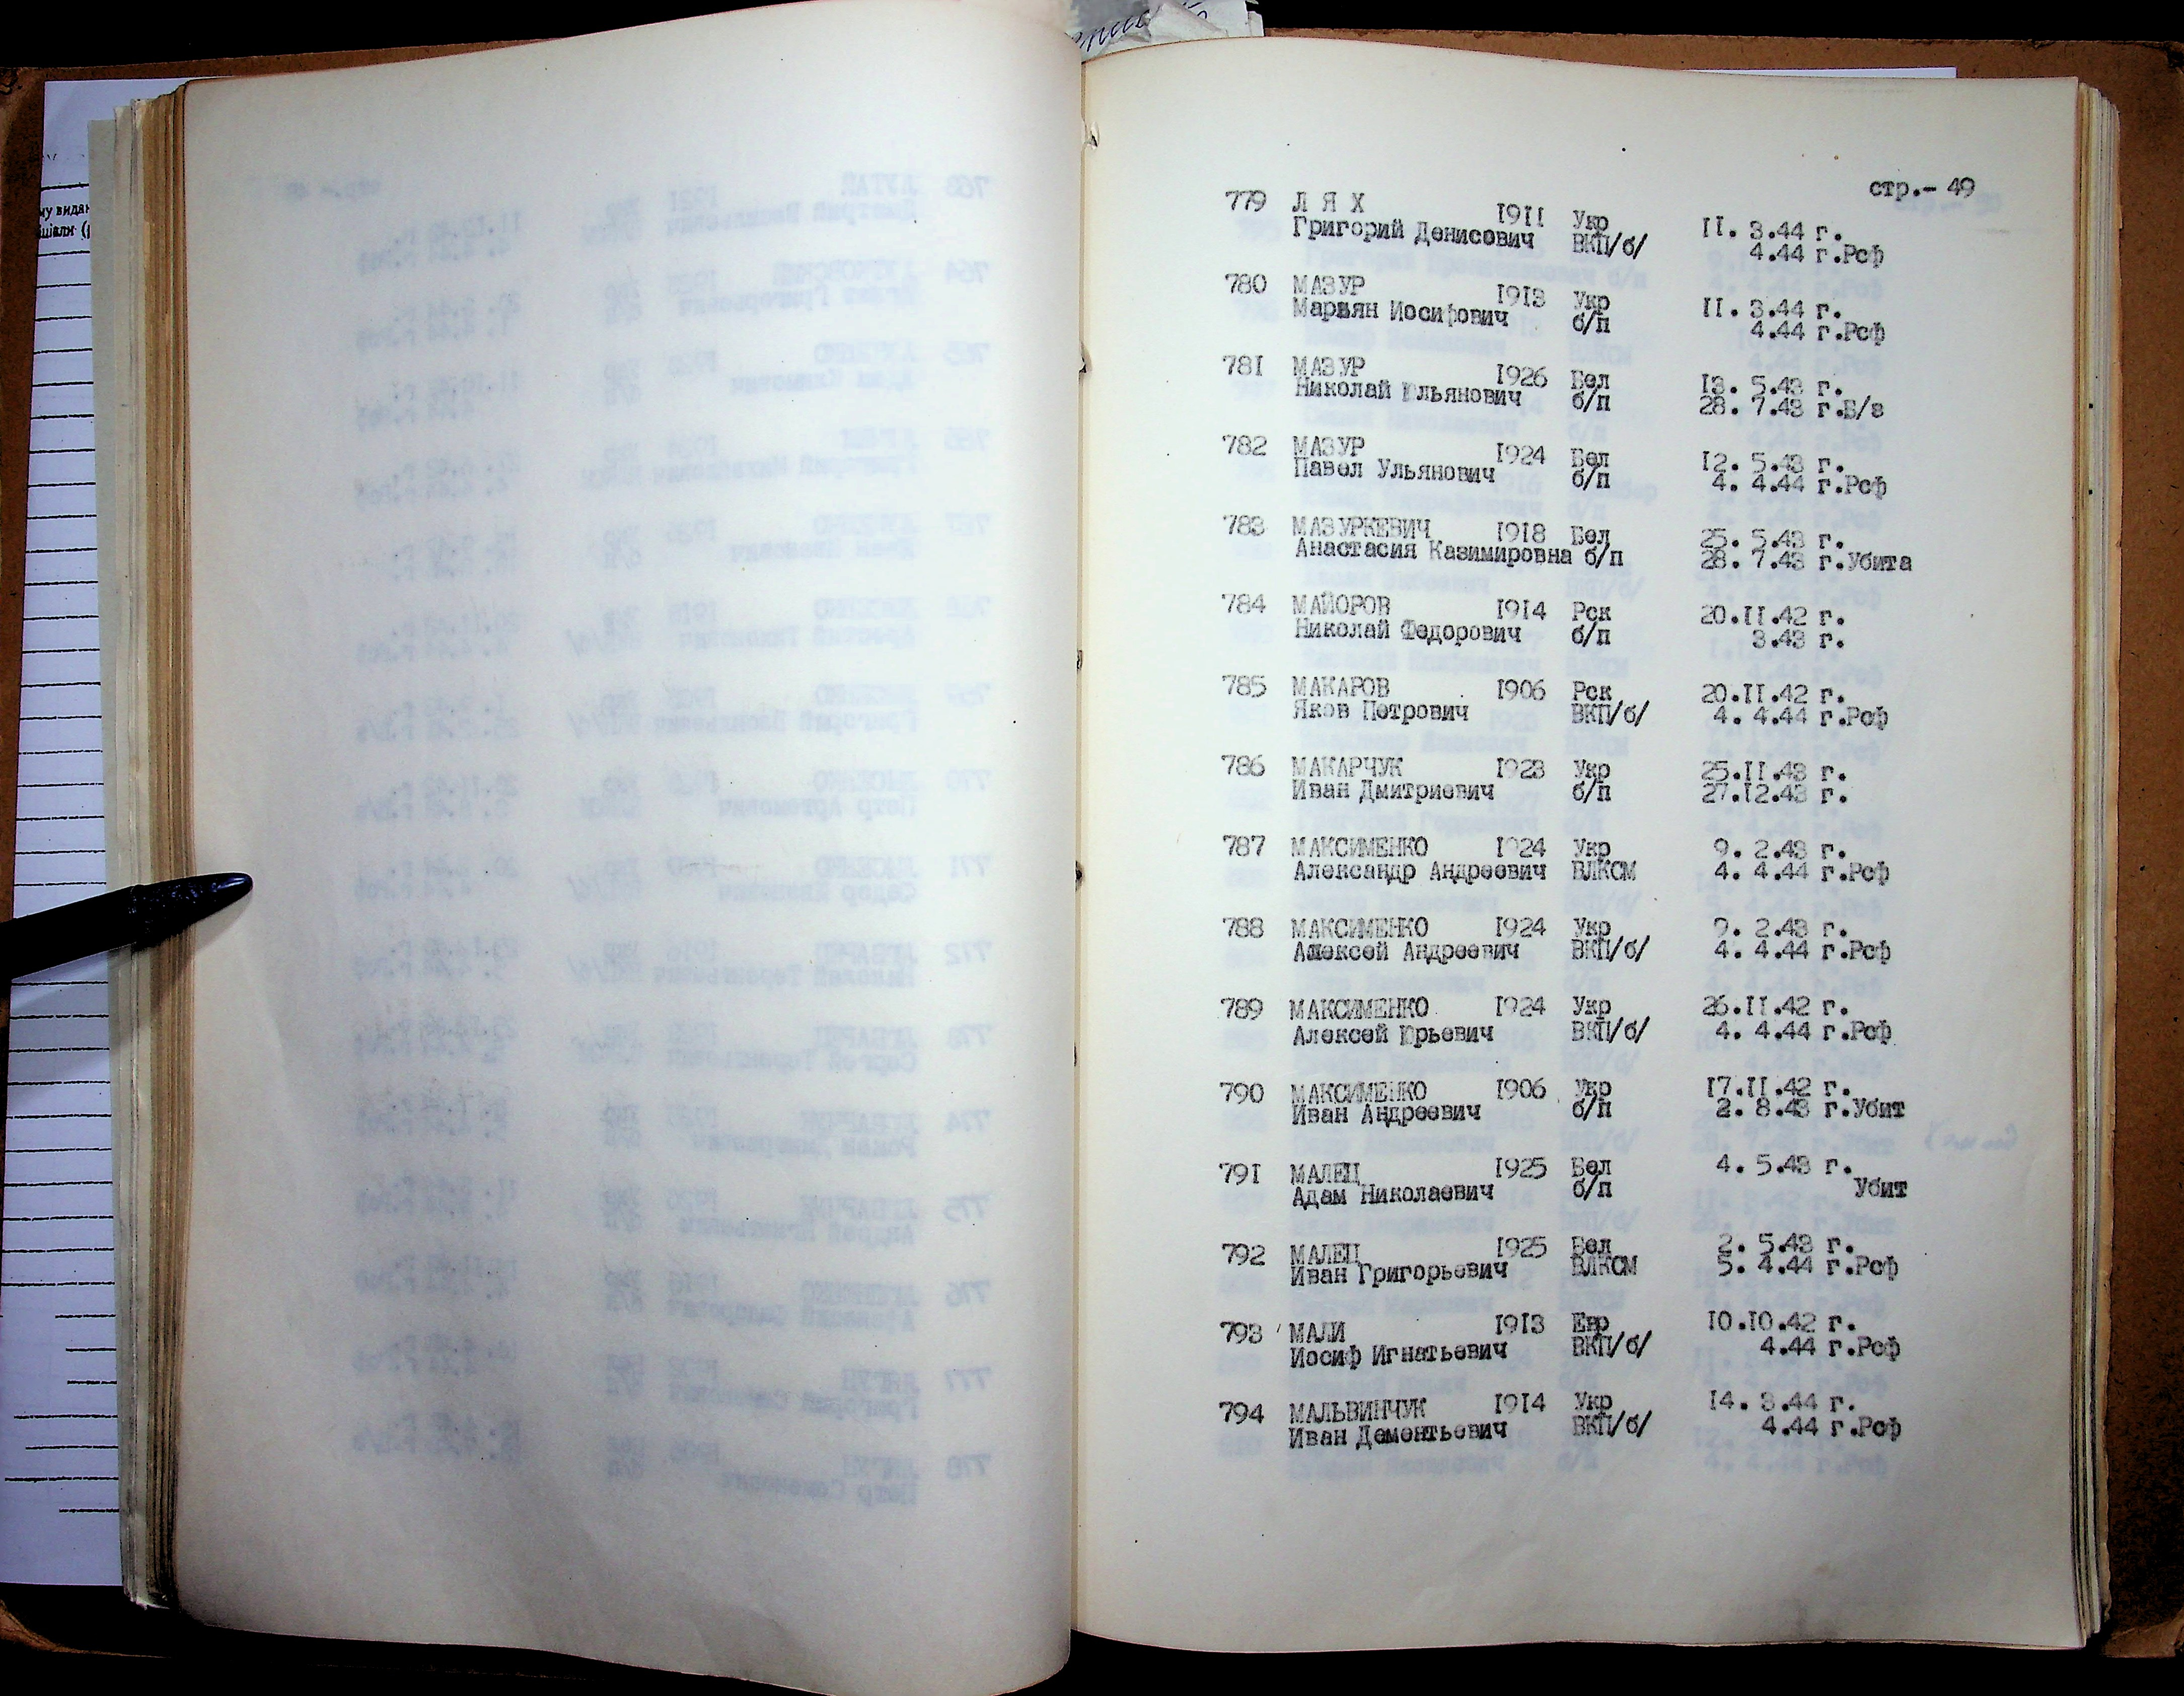 стр.- 49
779 Л Я Х 1911 Укр 11. 3.44 г.
Григорий Денисович ВКП/б/ 4.44 г.Рсф
780 МАЗУР 1913 Укр 11. 3.44 г.
Марьян Иосифович б/п 4.44 г.Рсф
781 МАЗУР 1926 Бел 13. 5.43 г.
Николай Ульянович б/п 28. 7.43 г.Б/з
782 МАЗУР 1924 Бел 12. 5.43 г.
Павел Ульянович б/п 4. 4.44 г.Рсф
783 МАЗУРКЕВИЧ 1918 Бел 25. 5.43 г.
Анастасия Казимировна б/п 28. 7.43 г.Убита
784 МАЙОРОВ 1914 Рск 20.11.42 г.
Николай Федорович б/п 3.43 г.
785 МАКАРОВ 1906 Рск 20.11.42 г.
Яков Петрович ВКП/б/ 4. 4.44 г.Рсф
786 МАКАРЧУК 1923 Укр 25.11.43 г.
Иван Дмитриевич б/п 27.12.43 г.
787 МАКСИМЕНКО 1924 Укр 9. 2.43 г.
Александр Андреевич ВЛКСМ 4. 4.44 г.Рсф
788 МАКСИМЕНКО 1924 Укр 9. 2.43 г.
Алексей Андреевич ВКП/б/ 4. 4.44 г.Рсф
789 МАКСИМЕНКО 1924 Укр 26.11.42 г.
Алексей Юрьевич ВКП/б/ 4. 4.44 г.Рсф
790 МАКСИМЕНКО 1906 Укр 17.11.42 г.
Иван Андреевич б/п 2. 8.43 г.Убит
791 МАЛЕЦ 1925 Бел 4. 5.43 г.
Адам Николаевич б/п Убит
792 МАЛЕЦ 1925 Бел 2. 5.43 г.
Иван Григорьевич ВЛКСМ 5. 4.44 г.Рсф
793 МАЛИ 1913 Евр 10.10.42 г.
Иосиф Игнатьевич ВКП/б/ 4.44 г.Рсф
794 МАЛЬВИНЧУК 1914 Укр 14. 3.44 г.
Иван Дементьевич ВКП/б/ 4.44 г.Рсф